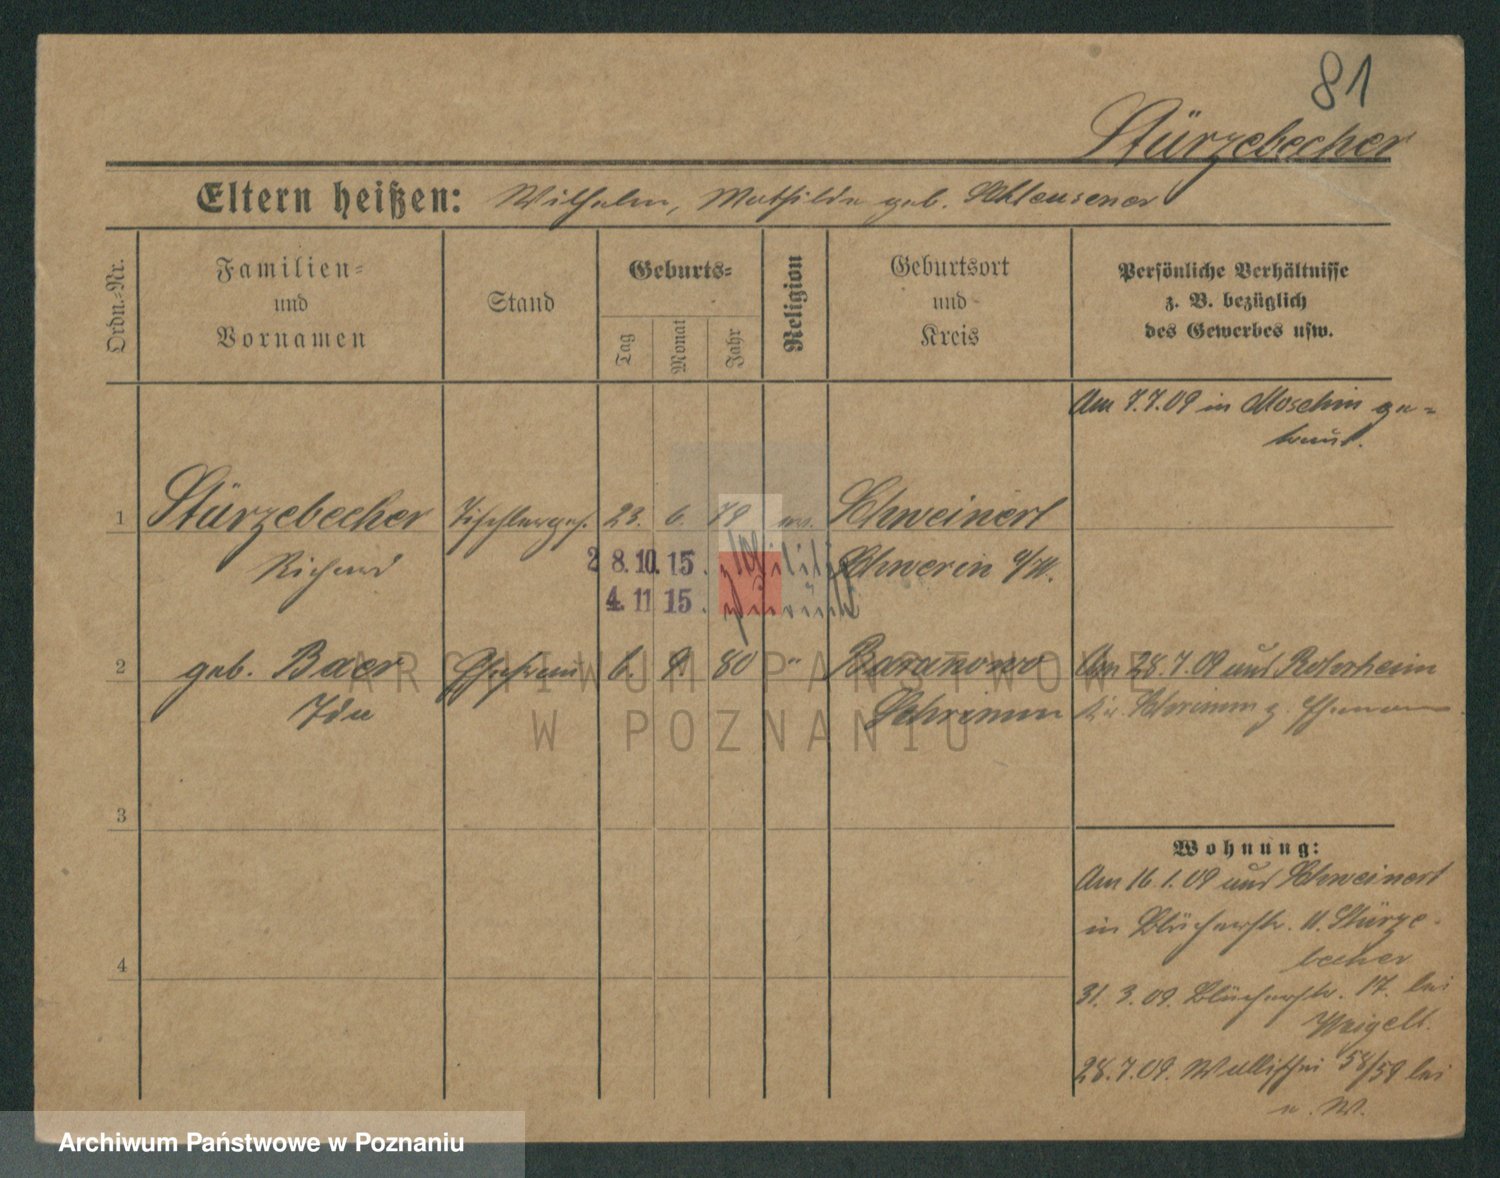 81
Stürzebecher
Eltern heißen: Wilhelm, Mathilde geb. Schleusener
Ordn.-Nr.
Familien-
und
Vornamen
Stand
Geburts-
Tag
Monat
Jahr
Religion
Geburtsort
und
Kreis
Persönliche Verhältnisse
z. B. bezüglich
des Gewerbes usw.
Am 7.7.09 in Moschin ge-
traut.
1 Stürzebecher Tischlerges. 23. 6. 79 ev. Schweinert
Richard Schwerin a/W.
28.10.15. z. Militär
4.11 15. zurück
2 geb. Baer Ehefrau 6. 9. 80 " Baranowo Am 28.7.09 aus Rohrheim
Ida Schrimm Kr. Schrimm z. Ehemann
3
Wohnung:
Am 16.1.09 aus Schweinert
in Blücherstr. 11. Stürze-
becher
4
31. 3. 09. Blücherstr. 17. bei
Weigelt.
28.7.09. Wallischei 58/59 bei
u. W.
ARCHIWUM PAŃSTWOWE
W POZNANIU
Archiwum Państwowe w Poznaniu